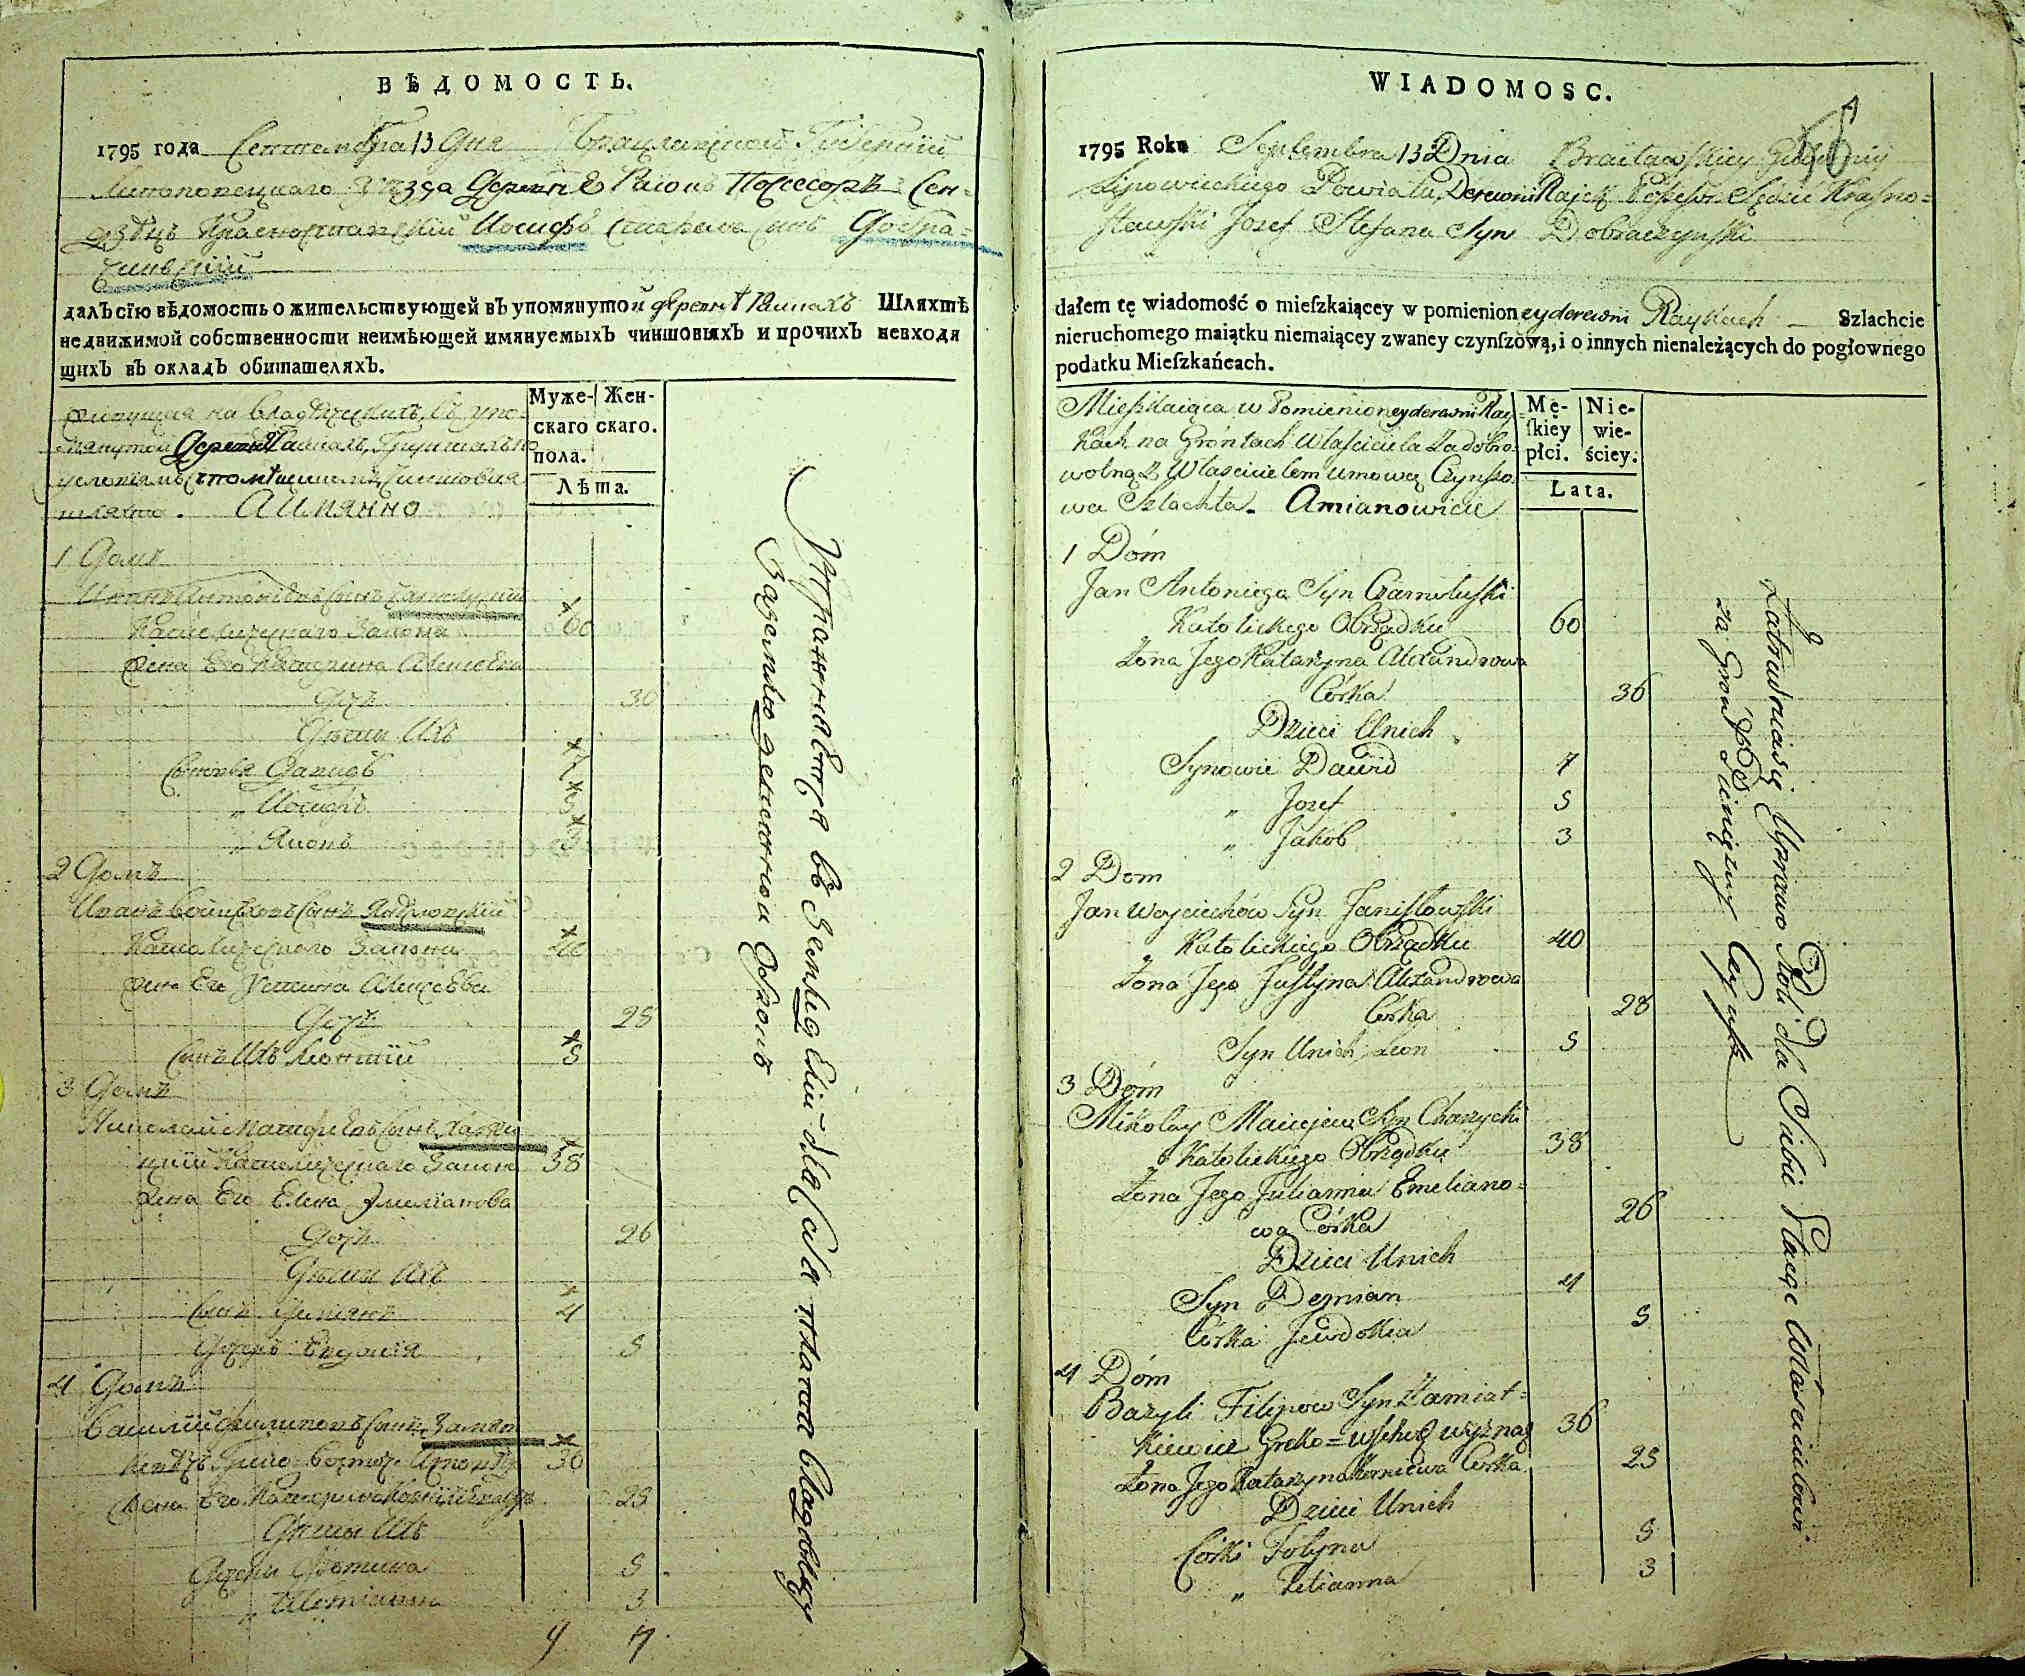 ВѢДОМОСТЬ.
1795 года Сентембра 13 Дня Брацлавской Губернїи
Липовецкаго уѣзда Деревни Раіокъ Посесоръ Сен-
Красноставскїй Иосифъ Стефана сынъ Добра-
чинскїй
далъ сїю вѣдомость о жительствующей въ упомянутой деревнѣ Раикахъ Шляхтѣ
недвижимой собственности неимѣющей имянуемыхъ чиншовыхъ и прочихъ невходя
щихъ въ окладъ обитателяхъ.
Муже-
скаго
пола.
Жен-
скаго.
Лѣта.
на владѣческихъ, въ упо-
мянутой Деревнѣ Раикахъ, Грунтахъ
условїямъ Чиншовая
шляхта. А Имянно
1 Домъ
Иванъ Антонїевъ сынъ Чарнолускїй
Католическаго Закона 60
Жена Его Катерина Алексеева
Дочь 30
Дѣти Ихъ
Сыновья Давидъ 7
„ Иосифъ 5
„ Яковъ 3
2 Домъ
Иванъ Войцеховъ сынъ
Католическаго Закона 40
Жена Его Устина Алексеева
Дочь 28
Сынъ Ихъ Леонтїй 5
3 Домъ
Николай Матфеевъ сынъ Хари
цкїй Католическаго Закона 38
Жена Его Елена Эмилїанова
Дочь 26
Дѣти Ихъ
Сынъ Демянъ 4
Дочеръ Евдокїя 5
4 Домъ
Василїй Филиповъ сынъ Замят
кевичъ Греко-Восточ. 36
Жена Его Катерина Корнїева дочь 23
Дѣти Ихъ
Дочки Фотина 5
„ Тетїанна 3
9 7
Упражняется въ Землед Елїи для Себя платя Владѣлцу
За Землю денежной Оброкъ
WIADOMOSC.
1795 Roku Septembra 13 Dnia Bracławskiey Gubernij
Lipowieckiego Powiatu, Derewni Rajek Posesor Sędzic Krasno=
stawski Jozef Stefana Syn Dobraczynski
dałem tę wiadomość o mieſzkaiącey w pomienioney derewni Raykach – Szlachcie
nieruchomego maiątku niemaiącey zwaney czynſzową, i o innych nienależących do pogłownego
podatku Mieſzkańcach.
Mieſzkaiąca w Pomienioney derewni Ray-
kach na Gróntach Właściciela Za dobro-
wolną z Włascicielem umową Czynszo-
wa Szlachta. Amianowicie
Mę-
ſkiey
płci.
Nie-
wie-
ściey.
Lata.
1 Dóm
Jan Antoniego Syn Czarnoluski
Katolickiego Obrządku 60
Zona Jego Katarzyna Alexandrowa
Córka 36
Dzieci Unich
Synowie Dawid 7
„ Jozef 5
„ Jakob 3
2 Dom
Jan Woyciechów Syn Janisłowski
Katolickiego Obrządku 40
Zona Jego Justyna Alexandrowa
Córka 28
Syn Unich Leon 5
3 Dóm
Mikołay Maciejew Syn Charycki
Katolickiego Obrządku 38
Zona Jego Julianna Emeliano=
wa Córka 26
Dzieci Unich
Syn Demian 4
Córka Jewdokia 5
4 Dóm
Bazyli Filipow Syn Zamiat=
kiewicz Greko=wschod wyznag 36
Zona Jego Katarzyna Korniewa Corka 23
Dzieci Unich
Córki Fotyna 5
„ Tetianna 3
Zatrudniaią się Uprawą Roli dla Siebie Płacąc Właścicielowi
za Grónt Pieniężny Czynsz